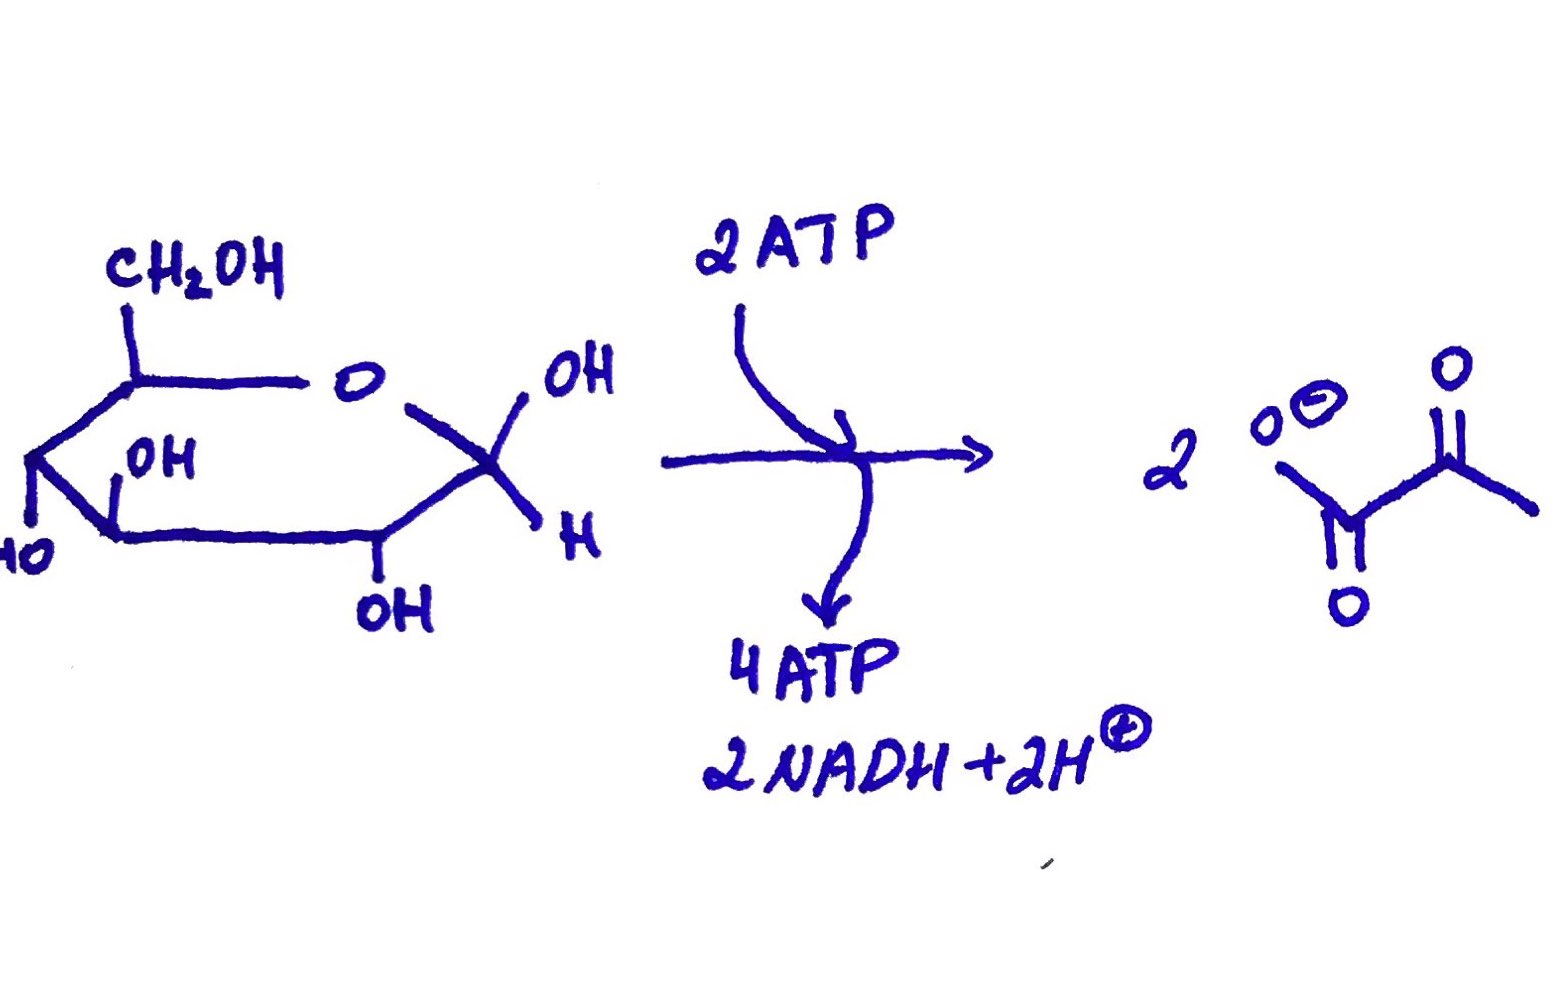 CH₂OH
O
OH
OH
HO
OH
H
2ATP
4ATP
2NADH+2H⊕
2
O⊖
O
O